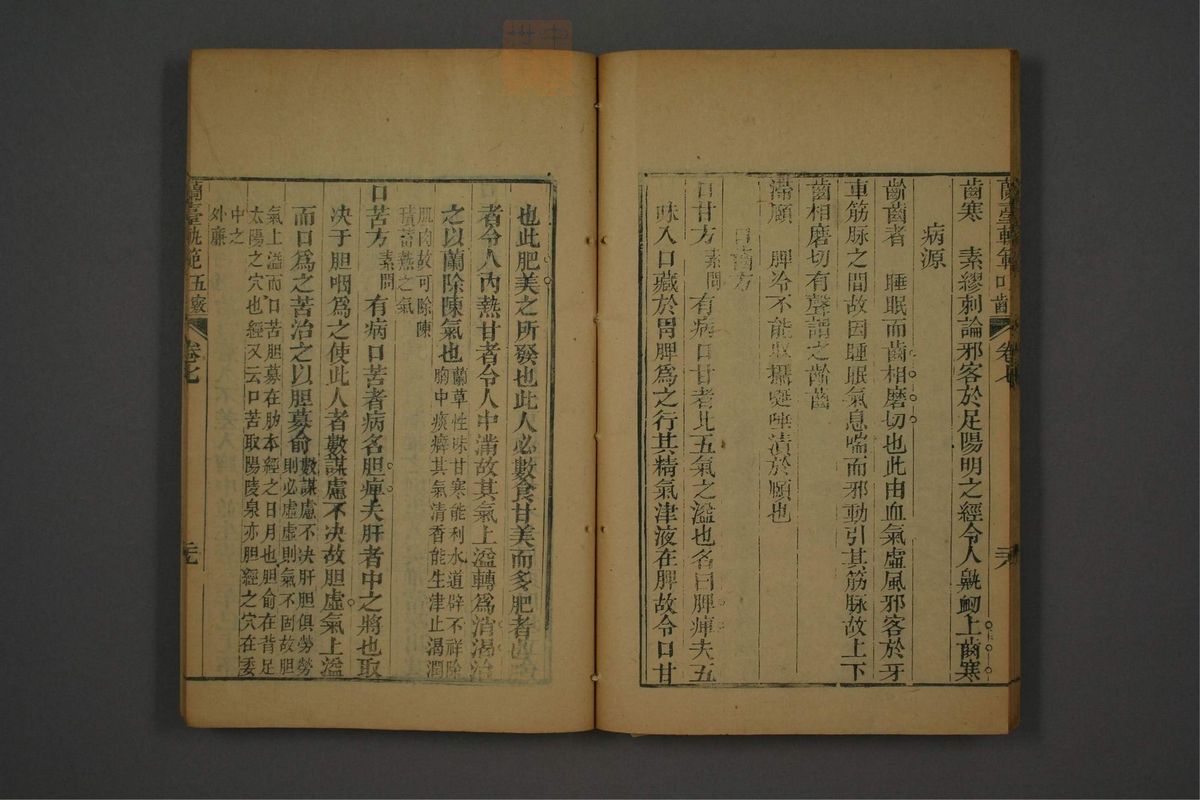 蘭臺軌範 口齒 卷七 六
齒寒　素繆刺論邪客於足陽明之經令人鼽衂上齒寒
病源
齘齒者　睡眠而齒相磨切也此由血氣虛風邪客於牙
車筋脉之間故因睡眠氣息喘而邪動引其筋脉故上下
齒相磨切有聲謂之齘齒
滯頤　脾冷不能收攝唾漬於頤也
口齒方
口甘方 素問 有病口甘者此五氣之溢也名曰脾癉夫五
味入口藏於胃脾爲之行其精氣津液在脾故令口甘
也此肥美之所發也此人必數食甘美而多肥者也
者令人內熱甘者令人中滿故其氣上溢轉爲消渴治
之以蘭除陳氣也 蘭草性味甘寒能利水道辟不祥除
胸中痰癖其氣清香能生津止渴潤
肌肉故可除陳
積蓄熱之氣
口苦方 素問 有病口苦者病名胆癉夫肝者中之將也取
决于胆咽爲之使此人者數謀慮不决故胆虛氣上溢
而口爲之苦治之以胆募俞 數謀慮不决肝胆俱勞勞
則必虛虛則氣不固故胆
氣上溢而口苦胆募在肋本經之日月也胆俞在背足
太陽之穴也經又云口苦取陽陵泉亦胆經之穴在委
中之
外廉
蘭臺軌範 五竅 卷七